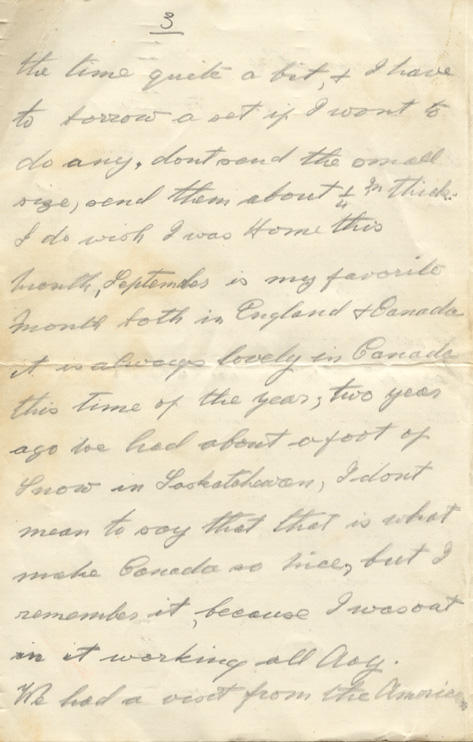 3
the time quite a bit, & I have
to borrow a set if I want to
do any, dont send the small
size, send them about 1/4 in thick.
I do wish I was Home this
month, September is my favorite
month both in England & Canada
it is always lovely in Canada
this time of the year, two year
ago we had about a foot of
snow in Saskatchewan, I dont
mean to say that that is what
make Canada so nice, but I
remember it, because I was out
in it working all day.
We had a visit from the American